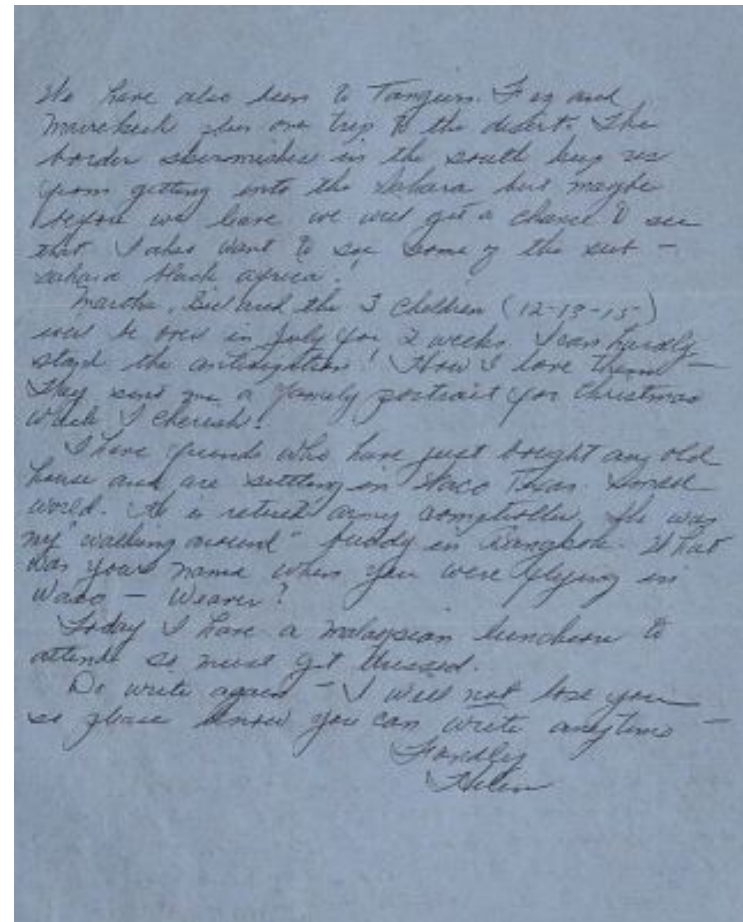 We have also been to Tangiers. Fez and
Marrekech plus one trip to the desert. The
border skirmishes in the south keep us
from getting into the Sahara but maybe
before we leave we will get a chance to see
that. I also want to see some of the sub -
sahara black africa.
Martha, Bill and the 3 children (12-13-15)
will be over in July for 2 weeks. I can hardly
stand the anticipation! How I love them -
They sent me a family portrait for Christmas
which I cherish.
I have friends who have just bought any old
house and are settling in Waco Texas. Small
world. He is retired army comptroller, she was
my "walking around" buddy in Bangkok. What
was your name when you were flying in
Waco - Weaver?
Today I have a malaysian luncheon to
attend so must get dressed.
Do write again - I will not lose you
so please know you can write anytime -
Fondly
Helen